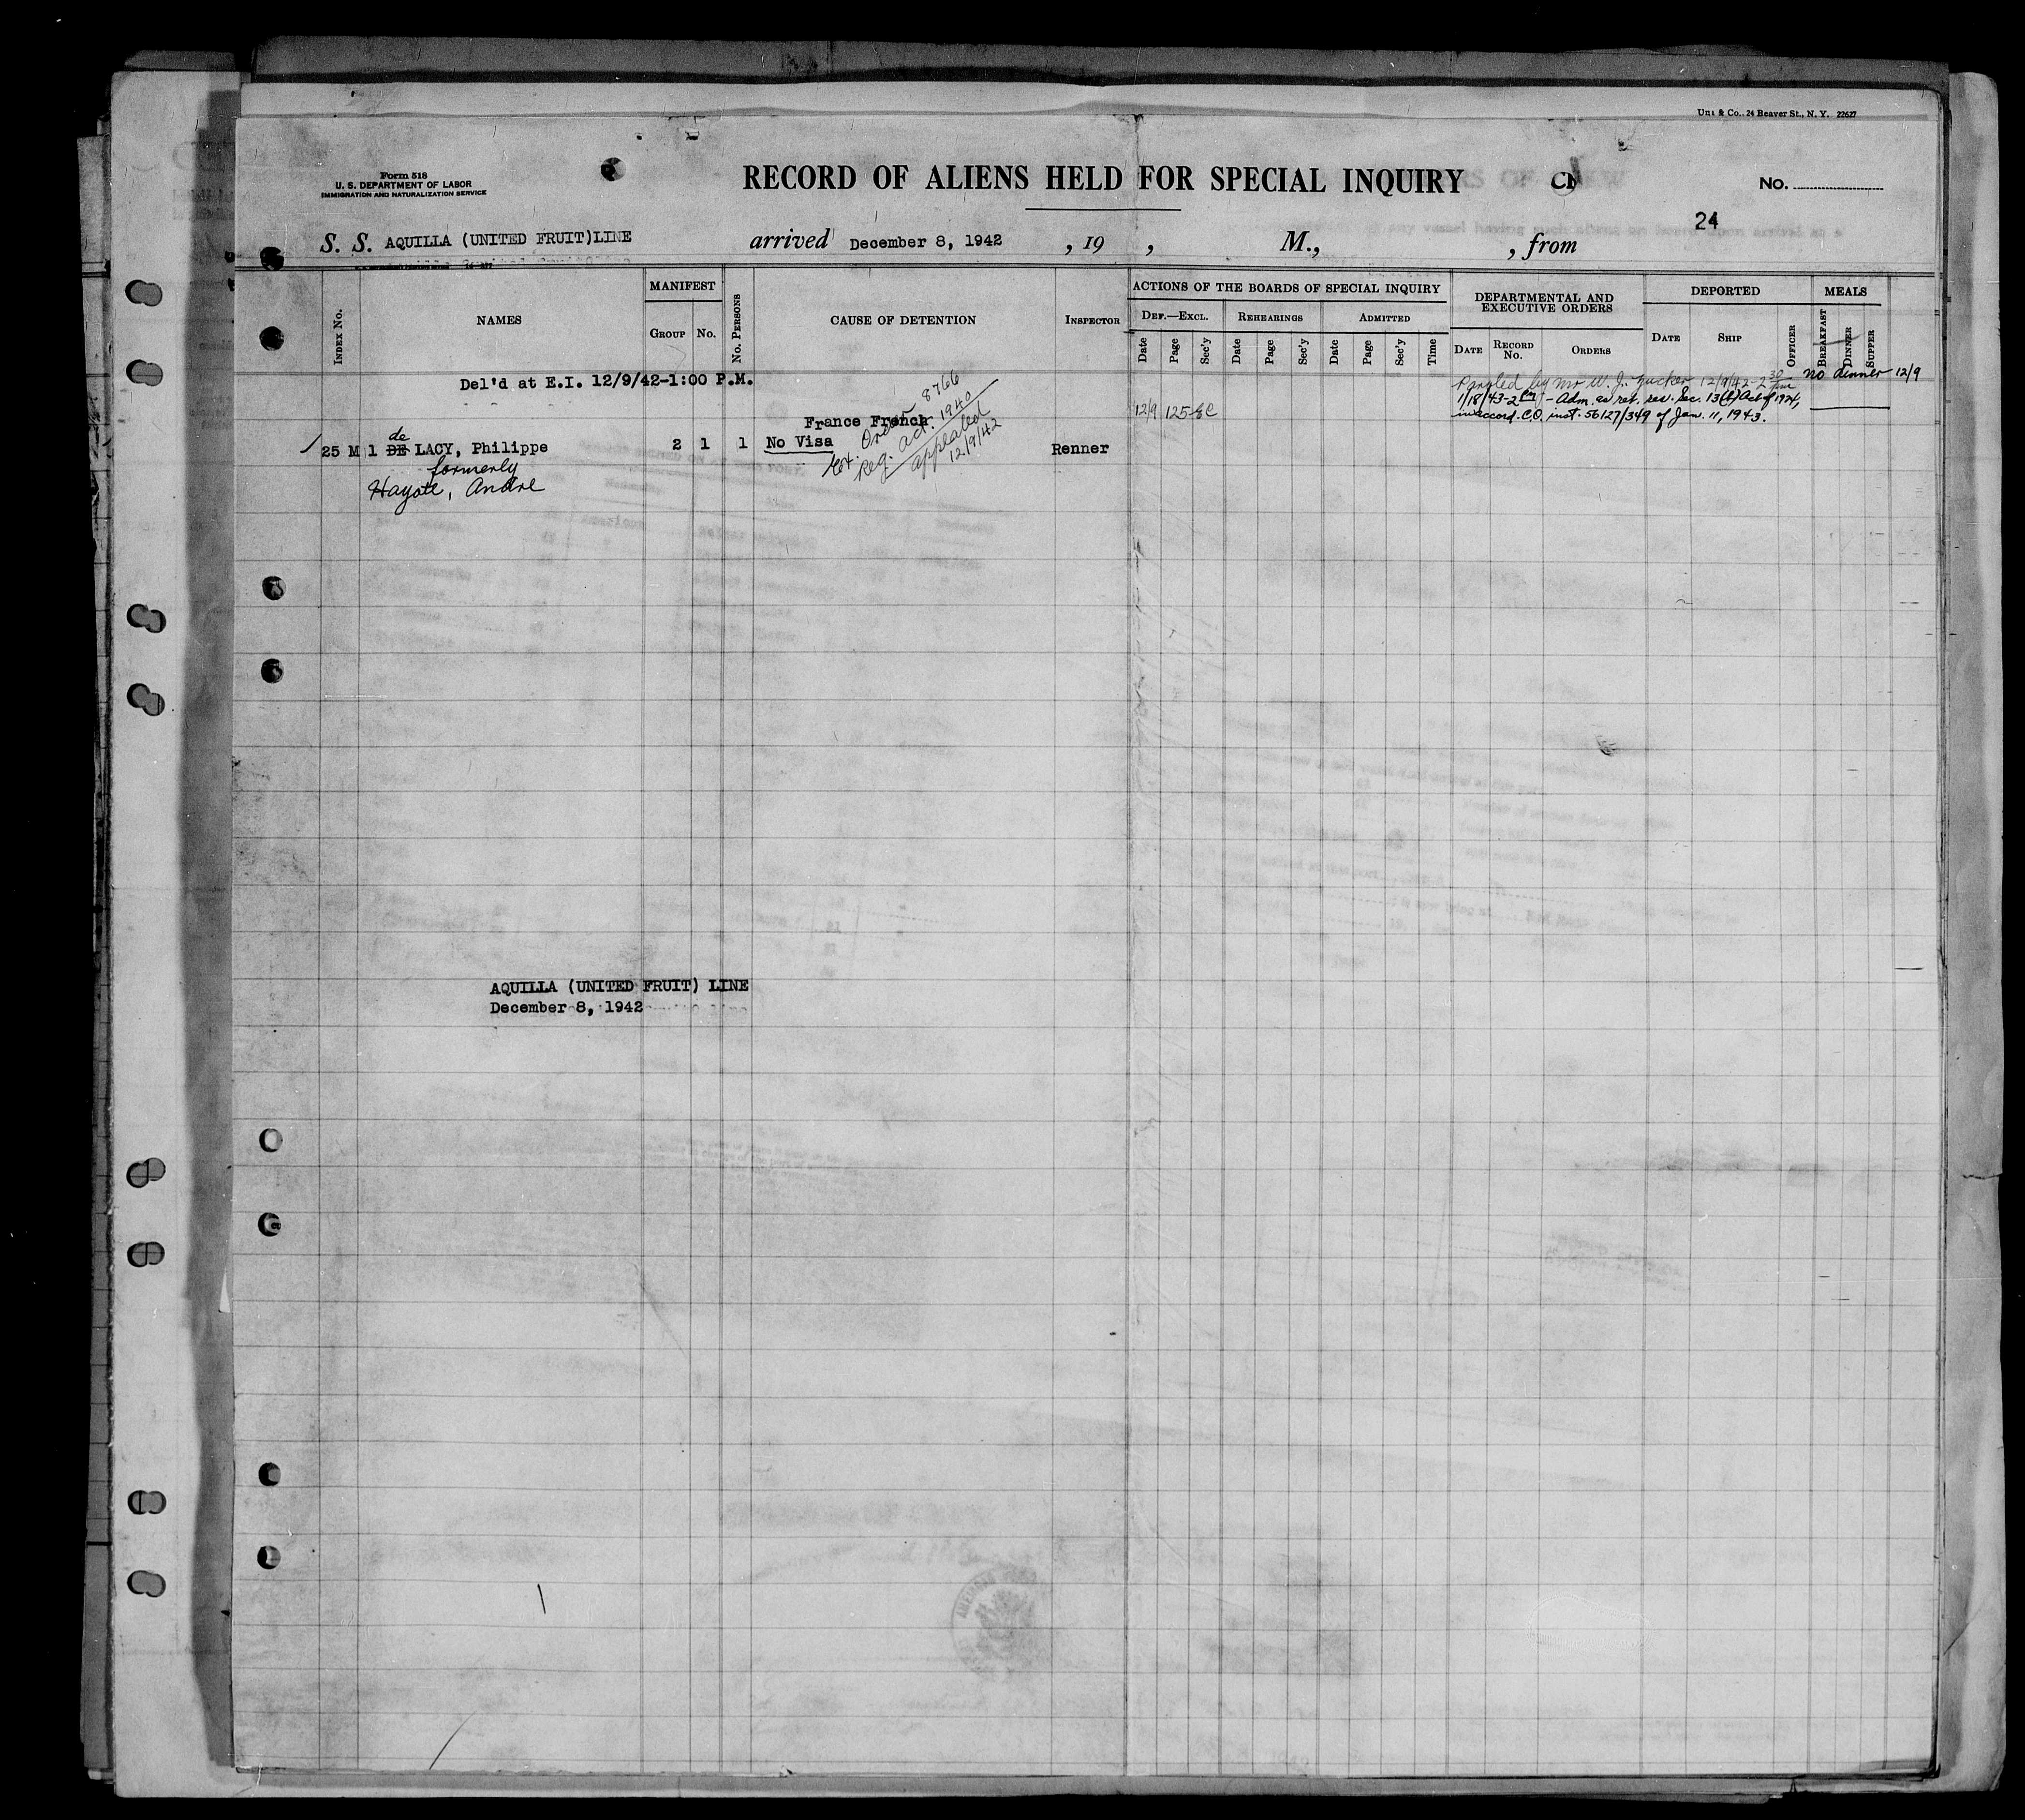 Uni & Co., 24 Beaver St., N. Y. 22627
Form 518
U. S. DEPARTMENT OF LABOR
IMMIGRATION AND NATURALIZATION SERVICE
RECORD OF ALIENS HELD FOR SPECIAL INQUIRY
No.
24
S. S. AQUILLA (UNITED FRUIT)LINE arrived December 8, 1942 , 19 , M., , from
INDEX No.
NAMES
MANIFEST
GROUP No.
No. PERSONS
CAUSE OF DETENTION
INSPECTOR
ACTIONS OF THE BOARDS OF SPECIAL INQUIRY
DEF.—EXCL. REHEARINGS ADMITTED
Date Page Sec'y Date Page Sec'y Date Page Sec'y Time
DEPARTMENTAL AND
EXECUTIVE ORDERS
DATE RECORD No. ORDERS
DEPORTED
DATE SHIP OFFICER
MEALS
BREAKFAST DINNER SUPPER
Del'd at E.I. 12/9/42-1:00 P.M.
Paroled by Mr W. J. Zucker 12/9/42-2 30 pm no dinner 12/9
1/18/43-2 pm - Adm. as ret. res. Sec. 13(b) Act of 1924,
in accord. C.O. inst. 56127/349 of Jan. 11, 1943.
12/9 125
France French
No Visa
Ex. Order 8766
Reg. act. 1940
appealed
12/9/42
de
25 M 1 DE LACY, Philippe 2 1 1 Renner
formerly
Hayote, Andre
AQUILLA (UNITED FRUIT) LINE
December 8, 1942